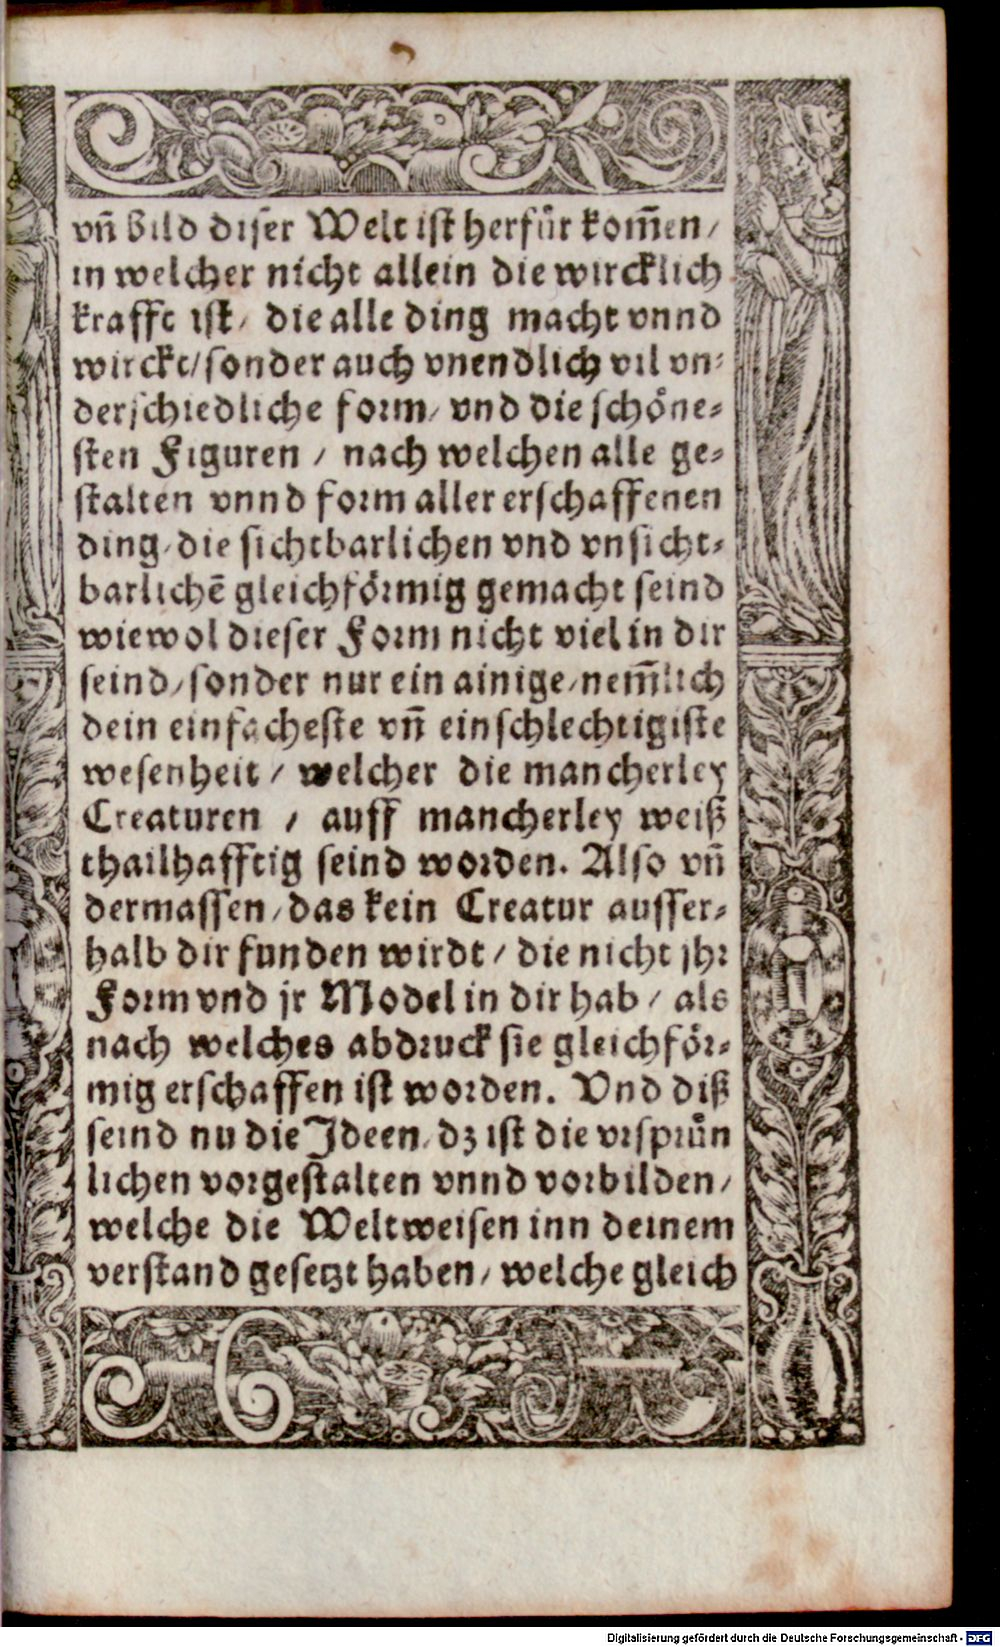 vñ bild diser Welt ist herfür kom̃en/
in welcher nicht allein die wircklich
krafft ist/ die alle ding macht vnnd
wirckt/ sonder auch vnendlich vil vn-
derschiedliche form/ vnd die schöne-
sten Figuren / nach welchen alle ge-
stalten vnnd form aller erschaffenen
ding/ die sichtbarlichen vnd vnsicht-
barlichẽ gleichförmig gemacht seind
wiewol dieser Form nicht viel in dir
seind/ sonder nur ein ainige/ nem̃lich
dein einfacheste vñ einschlechtigiste
wesenheit / welcher die mancherley
Creaturen / auff mancherley weiß
thailhafftig seind worden. Also vñ
dermassen/ das kein Creatur ausser-
halb dir funden wirdt / die nicht jhr
Form vnd jr Model in dir hab / als
nach welches abdruck sie gleichför-
mig erschaffen ist worden. Vnd diß
seind nu die Ideen/ dz ist die vrsprün
lichen vorgestalten vnnd vorbilden/
welche die Weltweisen inn deinem
verstand gesetzt haben/ welche gleich
Digitalisierung gefördert durch die Deutsche Forschungsgemeinschaft - DFG